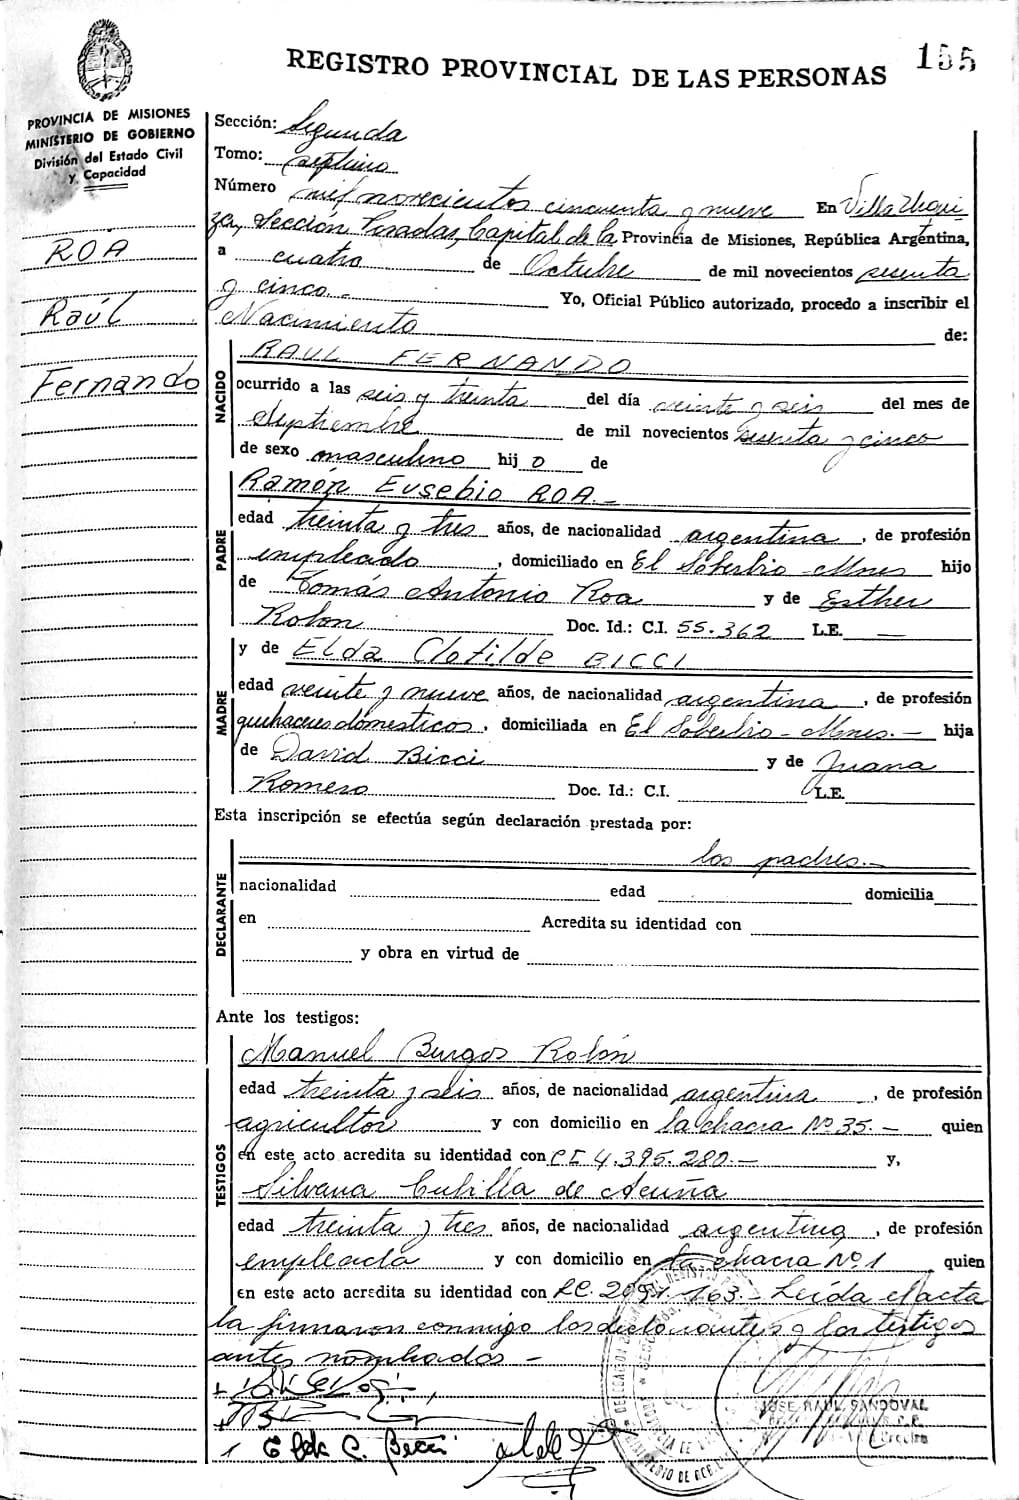 155
REGISTRO PROVINCIAL DE LAS PERSONAS
PROVINCIA DE MISIONES
MINISTERIO DE GOBIERNO
División del Estado Civil
y Capacidad
ROA
Raúl
Fernando
Sección: Segunda
Tomo: septimo
Número mil novecientos cincuenta y nueve En Villa Urqui
za, Sección Posadas, Capital de la Provincia de Misiones, República Argentina,
a cuatro de Octubre de mil novecientos sesenta
y cinco.- Yo, Oficial Público autorizado, procedo a inscribir el
Nacimiento de:
NACIDO
RAUL FERNANDO
ocurrido a las seis y treinta del día veinte y seis del mes de
Septiembre de mil novecientos sesenta y cinco
de sexo masculino hij o de
PADRE
Ramón Eusebio ROA.-
edad treinta y tres años, de nacionalidad argentina, de profesión
empleado, domiciliado en El Soberbio - Mnes hijo
de Tomás Antonio Roa y de Esther
Rolon Doc. Id.: C.I. 55.362 L.E. —
MADRE
y de Elda Clotilde BICCI
edad veinte y nueve años, de nacionalidad argentina, de profesión
quehaceres domesticos, domiciliada en El Soberbio - Mnes.- hija
de David Bicci y de Juana
Romero Doc. Id.: C.I. L.E.
Esta inscripción se efectúa según declaración prestada por:
DECLARANTE
los padres.-
nacionalidad edad domicilia
en Acredita su identidad con
y obra en virtud de
Ante los testigos:
TESTIGOS
Manuel Burgos Rolón
edad treinta y seis años, de nacionalidad argentina, de profesión
agricultor y con domicilio en la chacra Nº 35.- quien
en este acto acredita su identidad con CI 4.395.280.- y,
Silvana Cubilla de Acuña
edad treinta y tres años, de nacionalidad argentina, de profesión
empleada y con domicilio en la chacra Nº 1 quien
en este acto acredita su identidad con 163 - Leída el acta
la firmaron conmigo los declarantes y los testigos
antes nombrados -
JOSE RAUL SANDOVAL
Elda C. Bicci